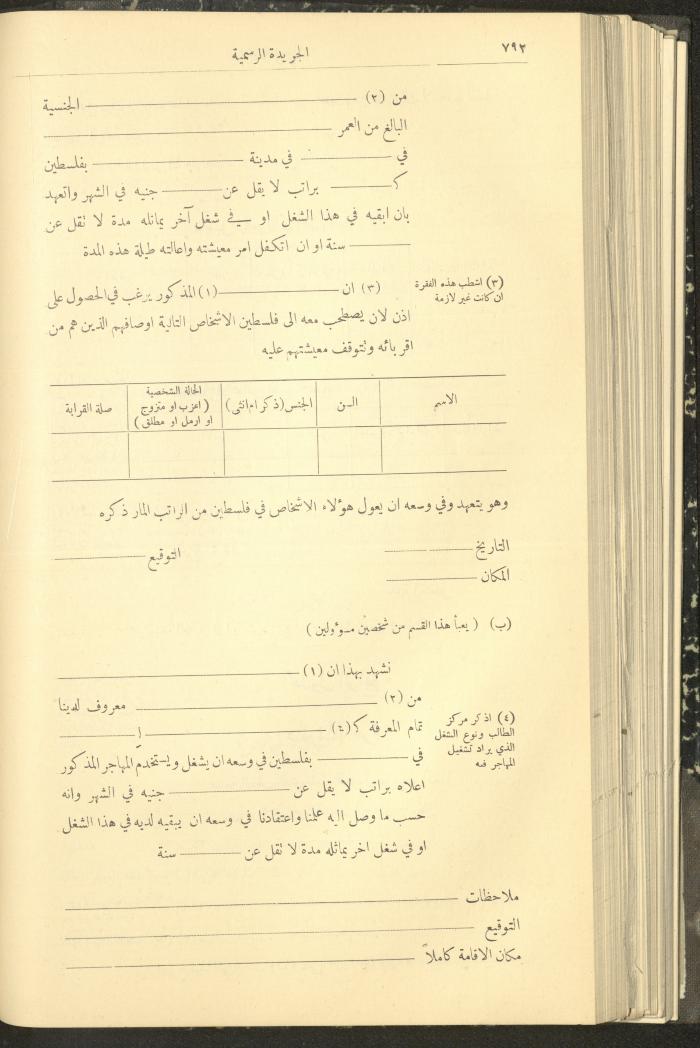 ٧٩٢ الجريدة الرسمية
من (٢) ——— الجنسية
البالغ من العمر ———
في ——— في مدينة ——— بفلسطين
ك ——— براتب لا يقل عن ——— جنيه في الشهر واتعهد
بان ابقيه في هذا الشغل او في شغل آخر يماثله مدة لا تقل عن
——— سنة او ان اتكفل امر معيشته واعالته طيلة هذه المدة
(٣) اشطب هذه الفقرة
ان كانت غير لازمة
(٣) ان ——— (١) المذكور يرغب في الحصول على
اذن لان يصطحب معه الى فلسطين الاشخاص التالية اوصافهم الذين هم من
اقربائه وتتوقف معيشتهم عليه
الاسم | السن | الجنس (ذكر ام انثى) | الحالة الشخصية (اعزب او متزوج او ارمل او مطلق) | صلة القرابة
وهو يتعهد وفي وسعه ان يعول هؤلاء الاشخاص في فلسطين من الراتب المار ذكره
التاريخ ——— التوقيع ———
المكان ———
(ب) (يعبأ هذا القسم من شخصين مسؤولين)
نشهد بهذا ان (١) ———
من (٢) ——— معروف لدينا
تمام المعرفة ك (٤) ———
(٤) اذكر مركز
الطالب ونوع الشغل
الذي يراد تشغيل
المهاجر فيه
في ——— بفلسطين في وسعه ان يشغل ويستخدم المهاجر المذكور
اعلاه براتب لا يقل عن ——— جنيه في الشهر وانه
حسب ما وصل اليه علمنا واعتقادنا في وسعه ان يبقيه لديه في هذا الشغل
او في شغل اخر يماثله مدة لا تقل عن ——— سنة
ملاحظات ———
التوقيع ———
مكان الاقامة كاملاً ———